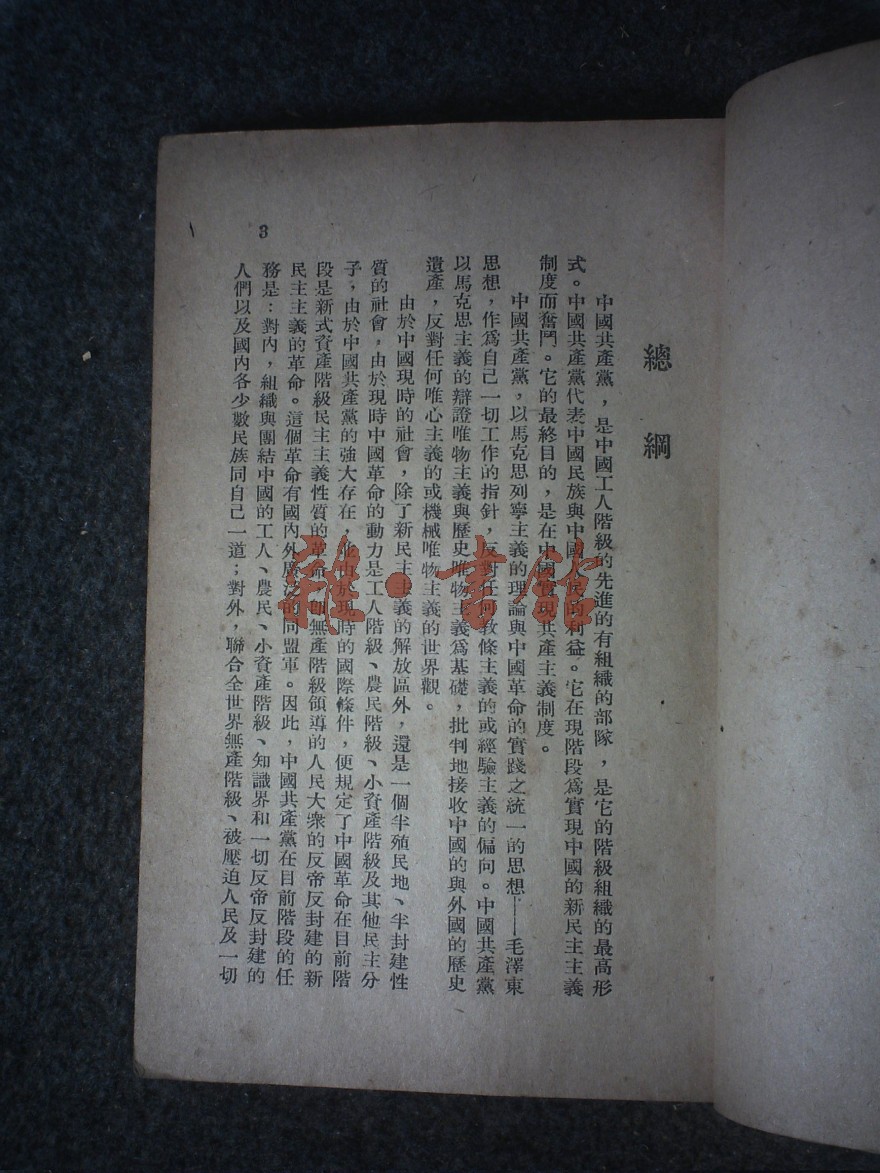 總綱
中國共產黨，是中國工人階級的先進的有組織的部隊，是它的階級組織的最高形
式。中國共產黨代表中國民族與中國人民的利益。它在現階段爲實現中國的新民主主義
制度而奮鬥。它的最終目的，是在中國實現共產主義制度。
中國共產黨，以馬克思列寧主義的理論與中國革命的實踐之統一的思想——毛澤東
思想，作爲自己一切工作的指針，反對任何教條主義的或經驗主義的偏向。中國共產黨
以馬克思主義的辯證唯物主義與歷史唯物主義爲基礎，批判地接收中國的與外國的歷史
遺產，反對任何唯心主義的或機械唯物主義的世界觀。
由於中國現時的社會，除了新民主主義的解放區外，還是一個半殖民地、半封建性
質的社會，由於現時中國革命的動力是工人階級、農民階級、小資產階級及其他民主分
子，由於中國共產黨的強大存在，並由於現時的國際條件，便規定了中國革命在目前階
段是新式資產階級民主主義性質的革命，卽無產階級領導的人民大衆的反帝反封建的新
民主主義的革命。這個革命有國內外廣泛的同盟軍。因此，中國共產黨在目前階段的任
務是：對內，組織與團結中國的工人、農民、小資產階級、知識界和一切反帝反封建的
人們以及國內各少數民族同自己一道；對外，聯合全世界無產階級、被壓迫人民及一切
3
雜·書館